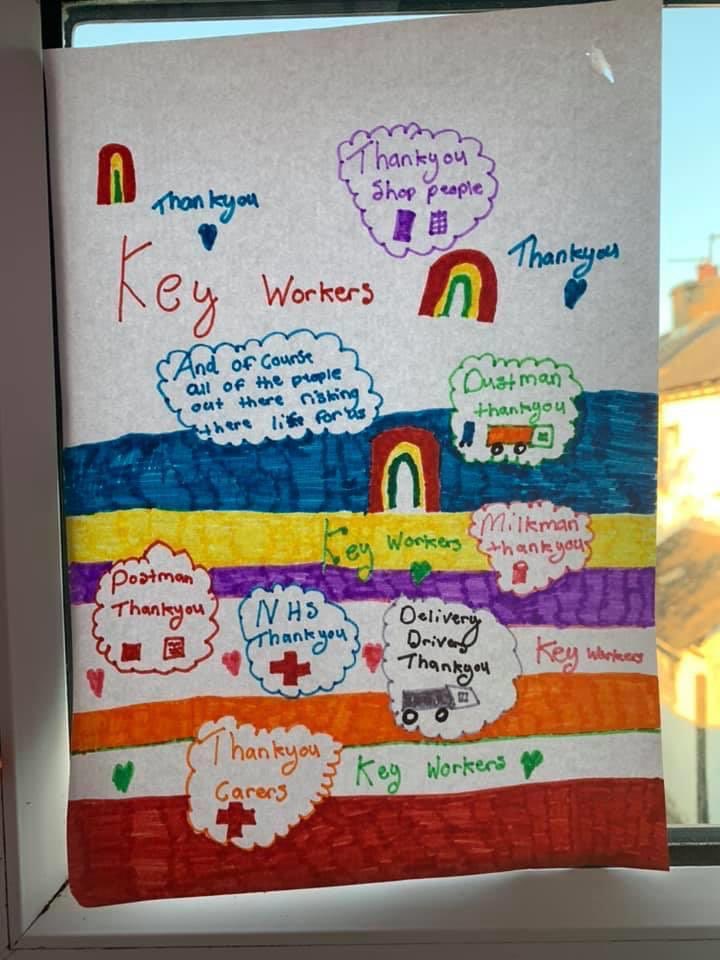 Thankyou
Shop people
Thankyou
Thankyou
Key Workers
And of Course
all of the people
out there risking
there life for us
Dustman
thankyou
Key Workers
Milkman
thankyou
Postman
Thankyou
NHS
Thankyou
Delivery
Drivers
Thankyou
Key Workers
Thankyou
Carers
Key Workers